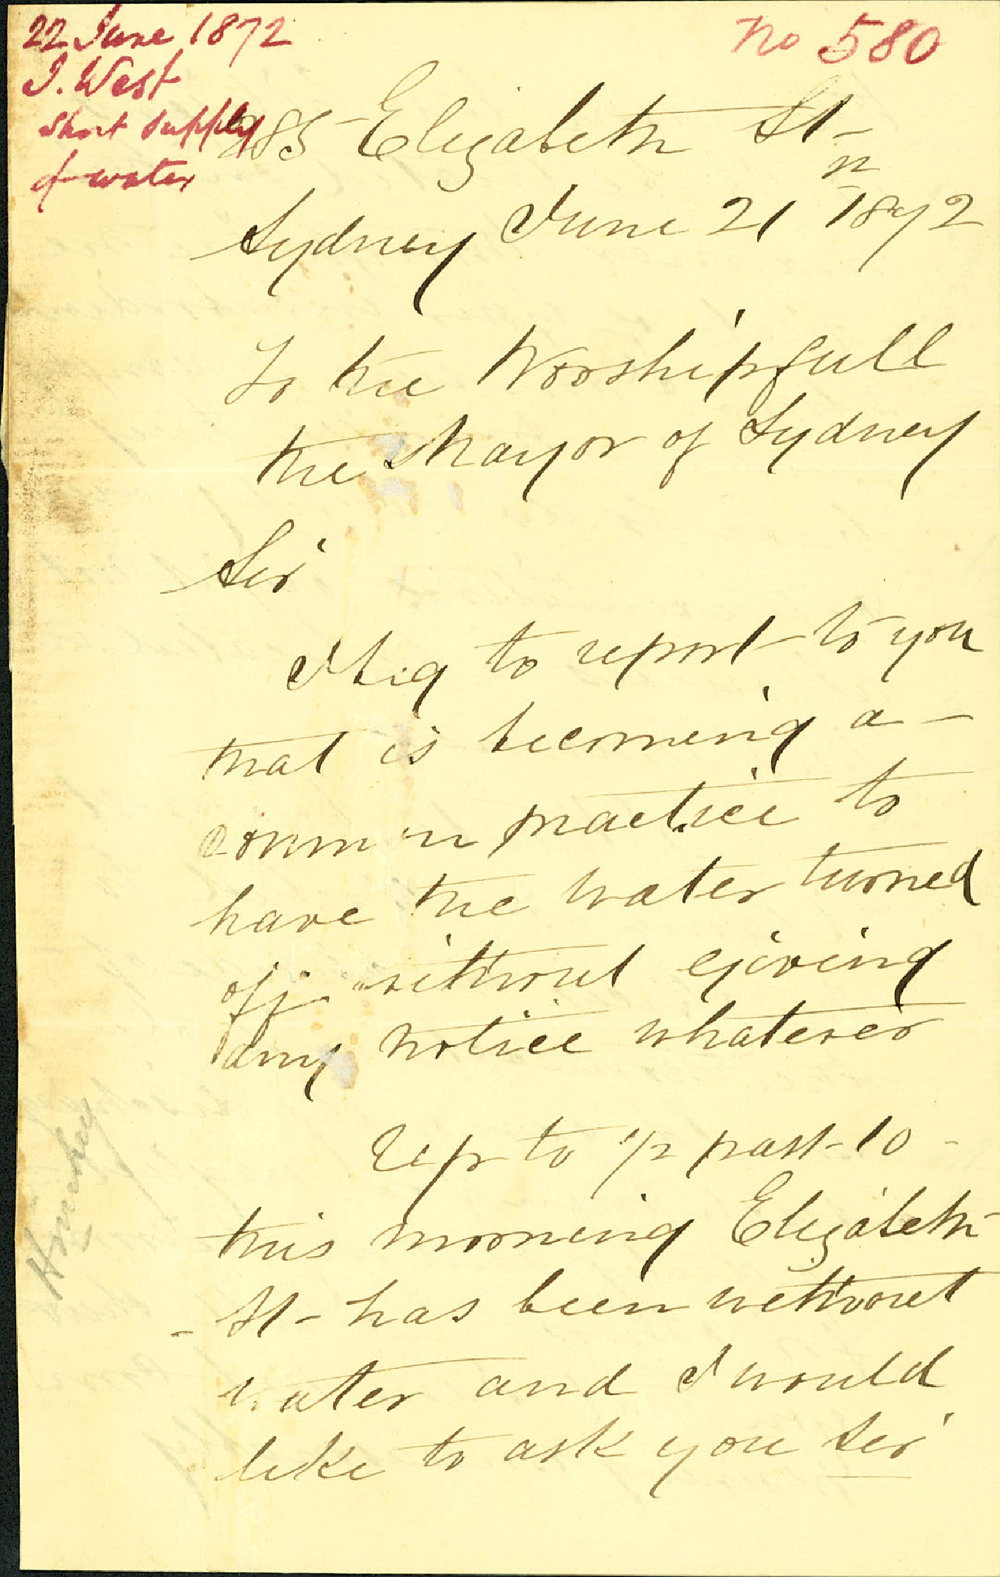 22 June 1872
J. West
short supply
of water
No 580
285 Elizabeth St
n
Sydney June 21 1872
To the Worshipfull
the Mayor of Sydney
Sir
I beg to report to you
that is becoming a
common practice to
have the water turned
off without giving
any notice whatever
Up to 1/2 past 10
this morning Elizabeth
St has been without
water and I would
like to ask you Sir